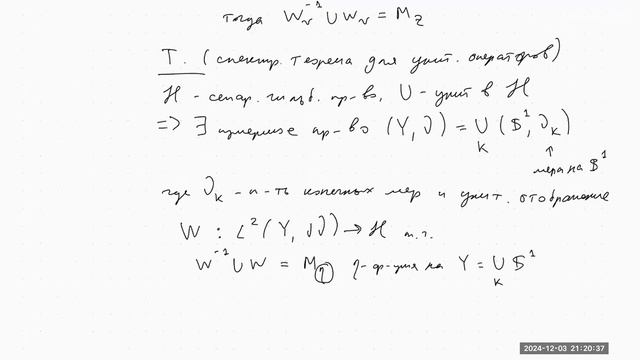 тогда W_ν^{-1} U W_ν = M_z
Т. (спектр. теорема для унит. операторов)
H - сепар. гильб. пр-во, U - унит в H
=> ∃ измеримое пр-во (Y, ν) = ∪_K (S^1, ν_K)
↑
мера на S^1
где ν_K - п-ть конечных мер и унит. отображение
W : L^2(Y, dν) → H т.ч.
W^{-1} U W = M_z z-ф-ция на Y = ∪_K S^1
2024-12-03 21:20:37